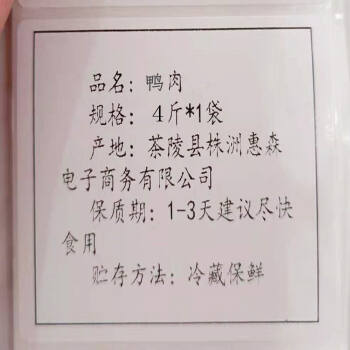 品名：鸭肉
规格：4斤*1袋
产地：茶陵县株洲惠森
电子商务有限公司
保质期：1-3天建议尽快
食用
贮存方法：冷藏保鲜